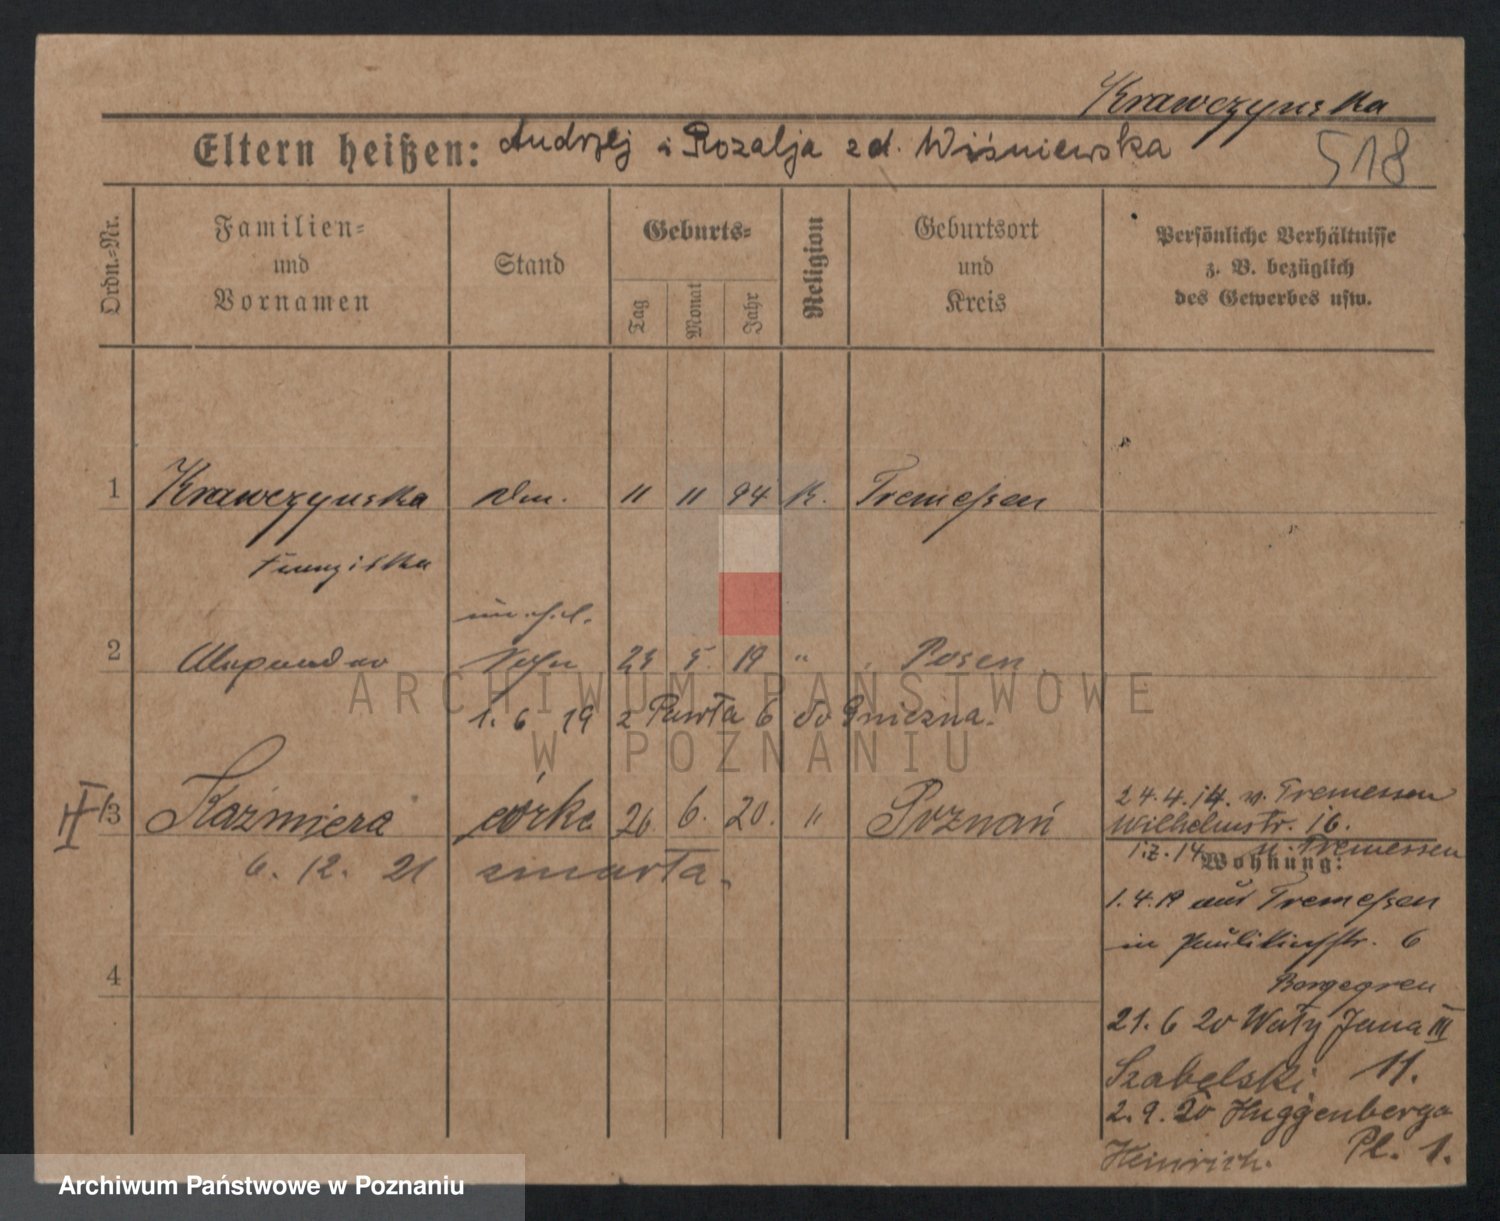 Krawczynska
Eltern heißen: Andrzej i Rozalja zd. Wiśniewska
518
Ordn.-Nr.
Familien-
und
Vornamen
Stand
Geburts-
Tag
Monat
Jahr
Religion
Geburtsort
und
Kreis
Persönliche Verhältnisse
z. B. bezüglich
des Gewerbes usw.
1 Krawczynska 11 11 94 K. Tremeßen
Franziska
2 Sohn 5. 19 " Posen
1. 6 19 z Pawła 6 do Gniezna.
II/3 Kaźmiera córka 26 6. 20. " Poznań
6. 12. 21 zmarła.
4
24.4.14. n. Tremessen
Wilhelmstr. 16.
Tremessen
Wohnung:
1.4.19 aus Tremeßen
in Paulikirchstr. 6
21. 6 20 Wały Jana III
Szabelski 11.
2. 9. 20 Huggenberga
Heinrich. Pl. 1.
ARCHIWUM PAŃSTWOWE
W POZNANIU
Archiwum Państwowe w Poznaniu